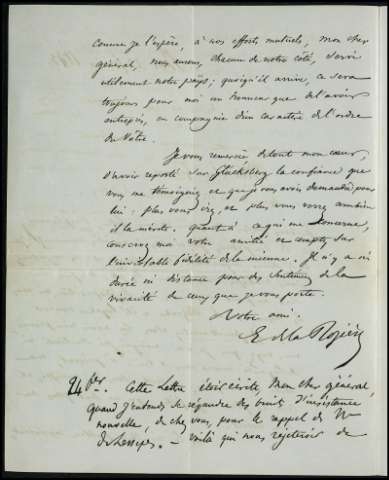 comme je l'espère, à nos efforts mutuels, mon cher
général, nous aurons, chacun de notre côté, servi
utilement notre pays; quoiqu'il arrive, ce sera
toujours pour moi un honneur que de l'avoir
entrepris, en compagnie d'un caractère de l'ordre
du Vôtre.
Je vous remercie, de tout mon cœur,
d'avoir reporté sur Glucksberg la confiance que
vous me témoignez et que je vous avois demandée pour
lui: plus vous irez, et plus vous verrez combien
il la mérite. quant à ce qui me concerne,
conservez moi votre amitié et comptez sur
l'inviolable fidélité de la mienne. Il n'y a ni
durée ni distance pour des sentimens de la
vivacité de ceux que je vous porte.
Votre ami.
E de la Rozière
24 fer. Cette Lettre étoit écrite, mon cher général,
quand j'entends se répandre des bruits d'insistance
nouvelle, de chez vous, pour le rappel de Mr
de Lesseps. – voilà qui nous rejeteroit de